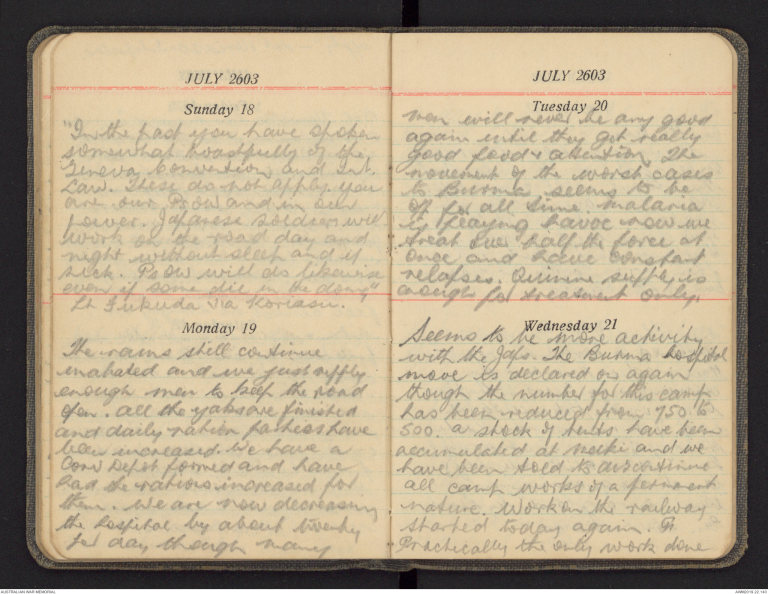 JULY 2603
Sunday 18
"In the past you have spoken
somewhat boastfully of the
Geneva Convention and Int.
Law. These do not apply. you
are our P.o.W and in our
power. Japanese soldiers will
work on the road day and
night without sleep and if
sick. P.o.W will do likewise
even if some die in the doing"
Lt Fukuda via Koriasu.
Monday 19
The rains still continue
unabated and we just supply
enough men to keep the road
open. All the yaks are finished
and daily ration parties have
been increased. We have a
Con Depot formed and have
had the rations increased for
them. We are now decreasing
the hospital by about twenty
per day though many
JULY 2603
Tuesday 20
men will never be any good
again until they get really
good food & attention. The
movement of the worst cases
to Burma seems to be
off for all time. Malaria
is playing havoc now we
treat over half the force at
once and have constant
relapses. Quinine supply is
enough for treatment only.
Wednesday 21
Seems to be more activity
with the Japs. The Burma hospital
move is declared on again
though the number for this camp
has been reduced from 750 to
500. a stock of tents have been
accumulated at Nieki and we
have been told to discontinue
all camp works of a permanent
nature. Work on the railway
started today again.
Practically the only work done
AUSTRALIAN WAR MEMORIAL